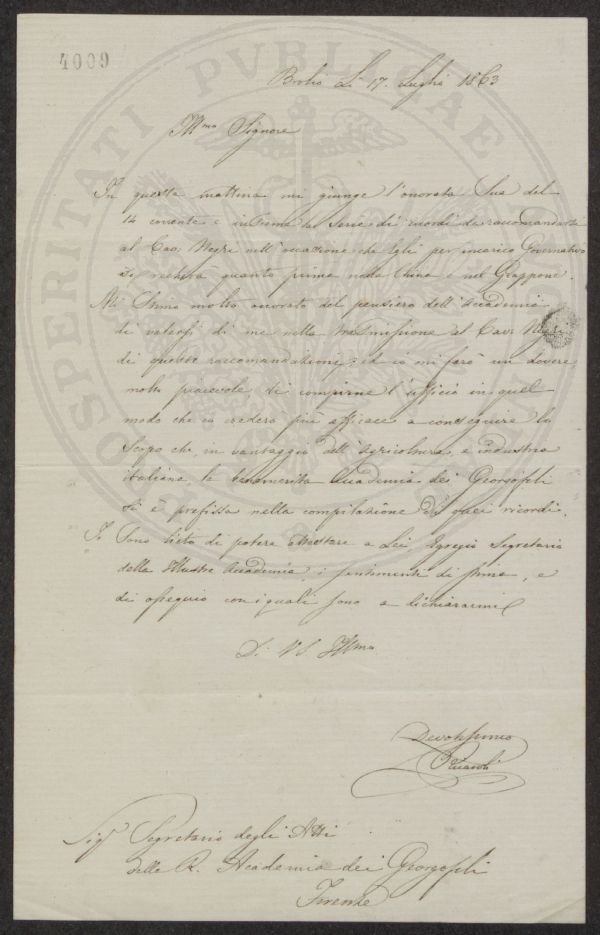 4009
PROSPERITATI PVBLICAE
Brolio Li 17. Luglio 1863
Illmo Signore
In questa mattina mi giunge l'onorata Sua del
14 corrente e insieme la Serie di ricordi da raccomandarsi
al Cav. Negri nell'occasione che Egli per incarico Governativo
si recherà quanto prima nella China e nel Giappone.
Mi Stimo molto onorato del pensiero dell'Accademia
di valersi di me nella trasmissione al Cav. Negri
di queste raccomandazioni; ed io mi farò un dovere
molto piacevole di compirne l'ufficio in quel
modo che io crederò più efficace a conseguire lo
Scopo che, in vantaggio dell'agricoltura, e industria
italiana, la benemerita Accademia dei Georgofili
si è prefissa nella compilazione di quei ricordi.
Sono lieto di potere attestare a Lei Egregio Segretario
della Illustre Accademia, i sentimenti di stima, e
di ossequio con i quali sono a dichiararmi
Di VS. Illma
Devotissimo
Ricasoli
Sigr Segretario degli Atti
della R. Accademia dei Georgofili
Firenze